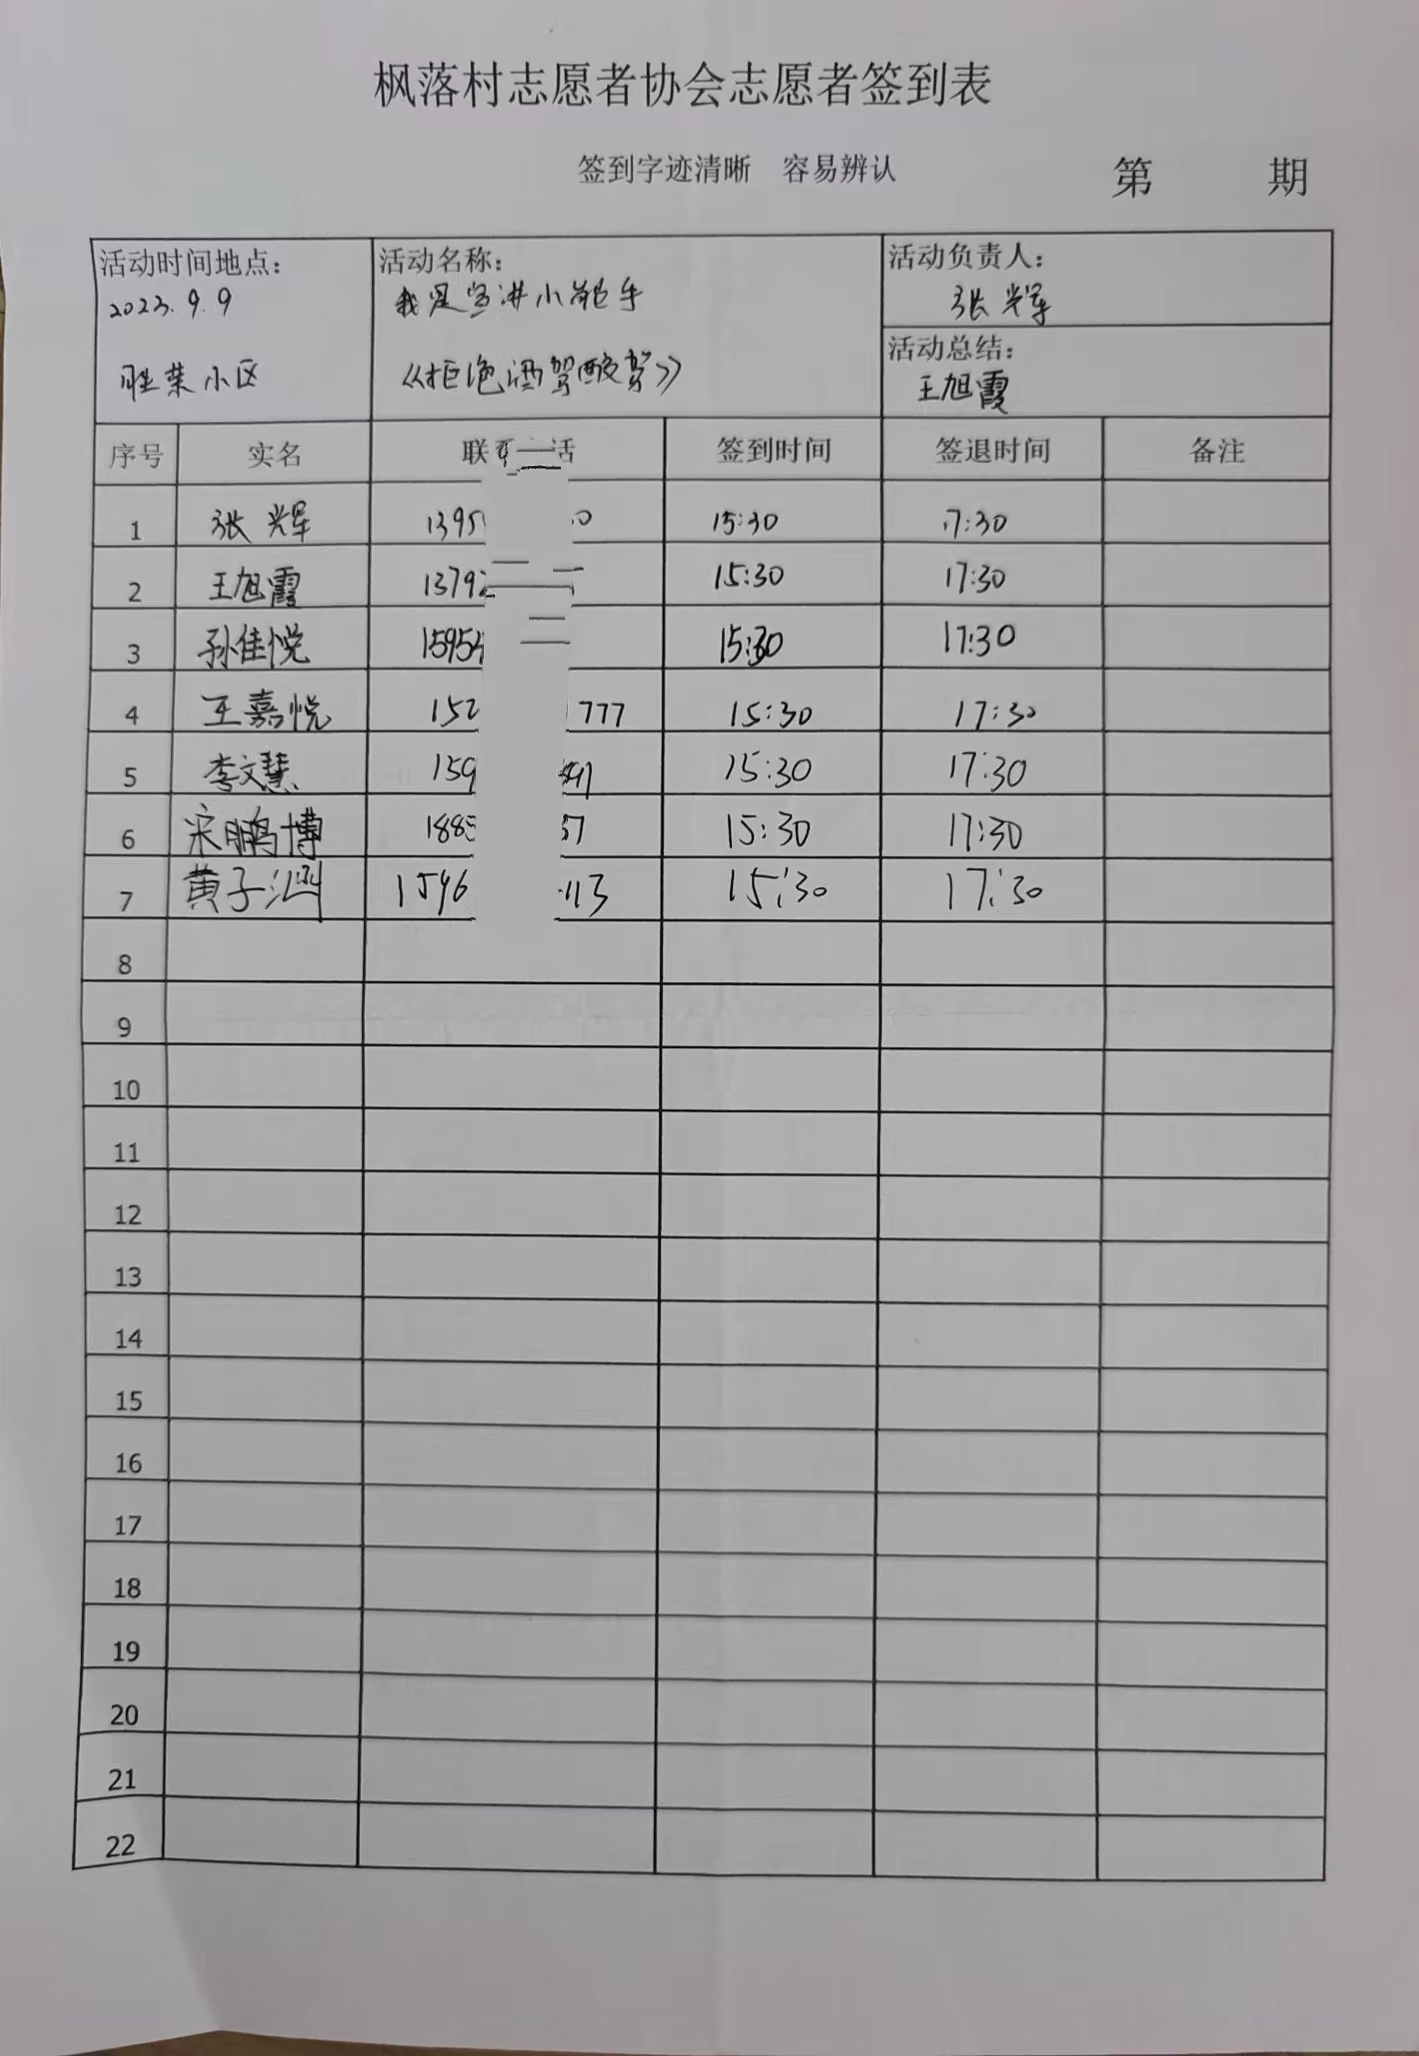 枫落村志愿者协会志愿者签到表
签到字迹清晰 容易辨认 第 期
活动时间地点： 活动名称： 活动负责人：
2023.9.9 我是宣讲小能手 张辉
活动总结：
胜荣小区 《拒绝酒驾醉驾》 王旭霞
序号 实名 联 话 签到时间 签退时间 备注
1 张辉 1395 0 15:30 17:30
2 王旭霞 1379 15:30 17:30
3 孙佳悦 1595 15:30 17:30
4 王嘉悦 152 777 15:30 17:30
5 李文慧 159 15:30 17:30
6 宋鹏博 188 37 15:30 17:30
7 黄子涵 1596 113 15:30 17:30
8
9
10
11
12
13
14
15
16
17
18
19
20
21
22